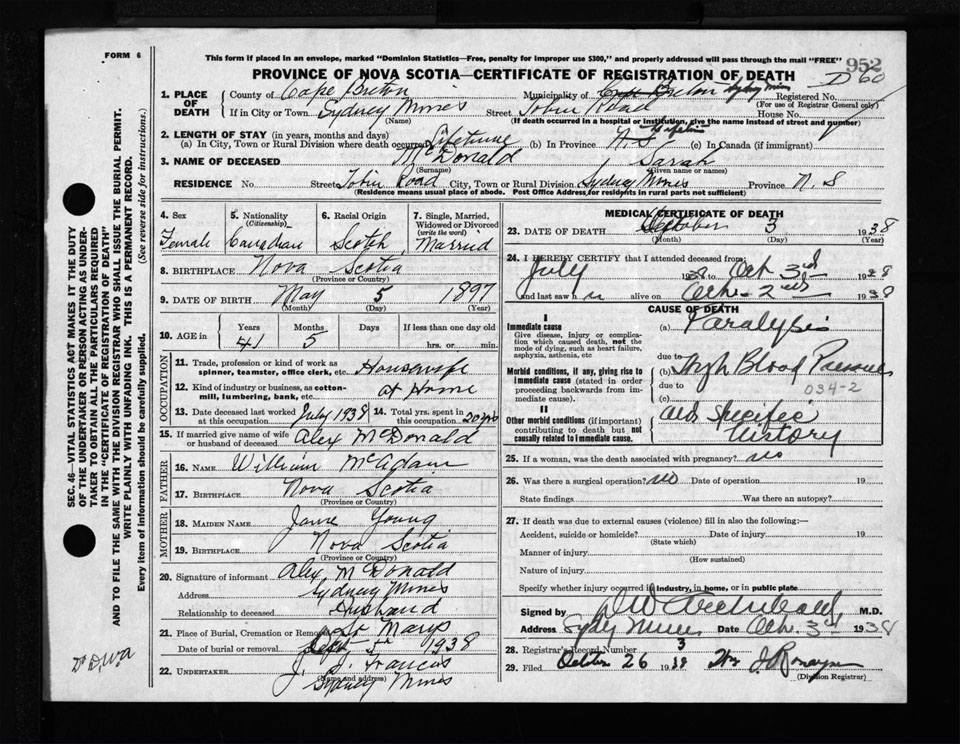 FORM 6
This form if placed in an envelope, marked "Dominion Statistics—Free, penalty for improper use $300," and properly addressed will pass through the mail "FREE"
952
PROVINCE OF NOVA SCOTIA—CERTIFICATE OF REGISTRATION OF DEATH
D 60
1. PLACE OF DEATH County of Cape Breton Municipality of Cape Breton Sydney Mines Registered No.
(For use of Registrar General only)
If in City or Town Sydney Mines Street Tobin Road House No.
(Name) (If death occurred in a hospital or institution, give the name instead of street and number)
2. LENGTH OF STAY (in years, months and days)
(a) In City, Town or Rural Division where death occurred Lifetime (b) In Province N. S. Lifetime (c) In Canada (if immigrant)
3. NAME OF DECEASED McDonald Sarah
(Surname) (Given name or names)
RESIDENCE No. Street Tobin Road City, Town or Rural Division Sydney Mines Province N. S
(Residence means usual place of abode. Post Office Address for residents in rural parts not sufficient)
4. Sex 5. Nationality (Citizenship) 6. Racial Origin 7. Single, Married, Widowed or Divorced (write the word)
Female Canadian Scotch Married
8. BIRTHPLACE Nova Scotia
(Province or Country)
9. DATE OF BIRTH May 5 1897
(Month) (Day) (Year)
10. AGE in Years Months Days If less than one day old
41 5 hrs. or min.
OCCUPATION
11. Trade, profession or kind of work as spinner, teamster, office clerk, etc. Housewife
12. Kind of industry or business, as cotton-mill, lumbering, bank, etc. at Home
13. Date deceased last worked at this occupation July 1938 14. Total yrs. spent in this occupation 20 yrs
15. If married give name of wife or husband of deceased Alex McDonald
FATHER
16. NAME William McAdam
17. BIRTHPLACE Nova Scotia
(Province or Country)
MOTHER
18. MAIDEN NAME Jane Young
19. BIRTHPLACE Nova Scotia
(Province or Country)
20. Signature of informant Alex McDonald
Address Sydney Mines
Relationship to deceased Husband
21. Place of Burial, Cremation or Removal St Marys
Date of burial or removal 1938
22. UNDERTAKER J. J. Francis
(Name and address)
Sydney Mines
MEDICAL CERTIFICATE OF DEATH
23. DATE OF DEATH October 3 1938
(Month) (Day) (Year)
24. I HEREBY CERTIFY that I attended deceased from:
July 1938 to Oct 3rd 1938
and last saw h alive on Oct. 2nd 1938
CAUSE OF DEATH
I
Immediate cause
Give disease, injury or complication which caused death, not the mode of dying, such as heart failure, asphyxia, asthenia, etc
(a) Paralysis
due to
Morbid conditions, if any, giving rise to immediate cause (stated in order proceeding backwards from immediate cause).
(b) High Blood Pressure
due to 034-2
(c)
II
Other morbid conditions (if important) contributing to death but not causally related to immediate cause.
Old Specific
History
25. If a woman, was the death associated with pregnancy? no
26. Was there a surgical operation? no Date of operation 19
State findings Was there an autopsy?
27. If death was due to external causes (violence) fill in also the following:—
Accident, suicide or homicide? Date of injury 19
(State which)
Manner of injury
(How sustained)
Nature of injury
Specify whether injury occurred in industry, in home, or in public place
Signed by D W Archibald M.D.
Address Sydy Mines Date Oct. 3rd 1938
28. Registrar's Record Number 3
29. Filed October 26 1938
(Division Registrar)
SEC. 46—VITAL STATISTICS ACT MAKES IT THE DUTY
OF THE UNDERTAKER OR PERSON ACTING AS UNDER-
TAKER TO OBTAIN ALL THE PARTICULARS REQUIRED
IN THE "CERTIFICATE OF REGISTRATION OF DEATH"
AND TO FILE THE SAME WITH THE DIVISION REGISTRAR WHO SHALL ISSUE THE BURIAL PERMIT.
WRITE PLAINLY WITH UNFADING INK. THIS IS A PERMANENT RECORD.
Every item of information should be carefully supplied. (See reverse side for instructions.)